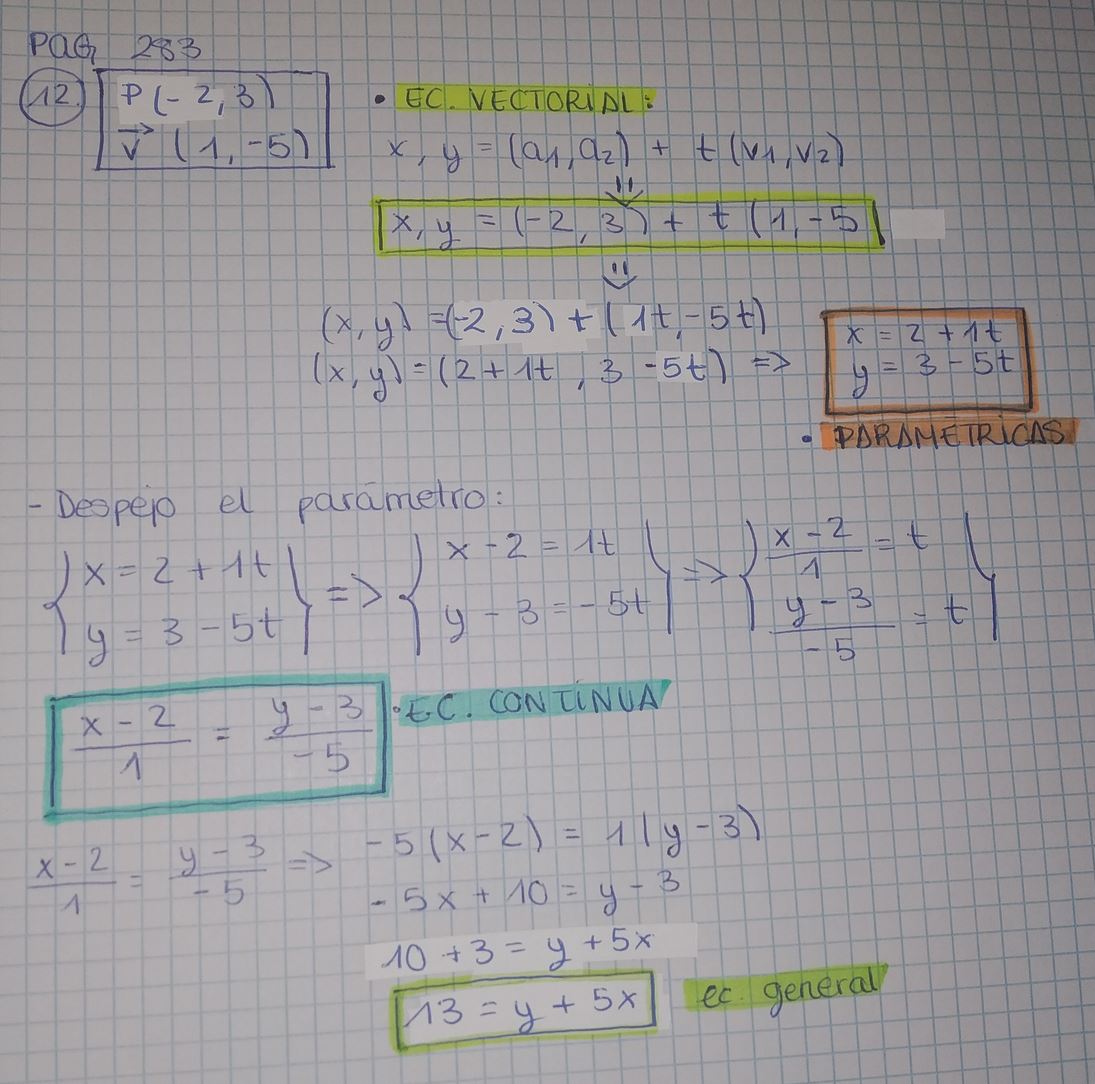 PAG 283
12 P(-2,3)
v⃗ (1,-5)
• EC. VECTORIAL:
x, y = (a1, a2) + t (v1, v2)
⇓
x, y = (-2, 3) + t (1, -5
⇓
(x, y) = (-2, 3) + (1t, -5t)
(x, y) = (2 + 1t , 3 - 5t) =>
x = 2 + 1t
y = 3 - 5t
• PARAMÉTRICAS
- Despejo el parámetro:
{ x = 2 + 1t
y = 3 - 5t } =>
{ x - 2 = 1t
y - 3 = -5t } =>
{ x - 2 / 1 = t
y - 3 / -5 = t }
x - 2 / 1 = y - 3 / -5 • EC. CONTÍNUA
x - 2 / 1 = y - 3 / -5 => -5 (x - 2) = 1 (y - 3)
- 5x + 10 = y - 3
10 + 3 = y + 5x
13 = y + 5x ec. general